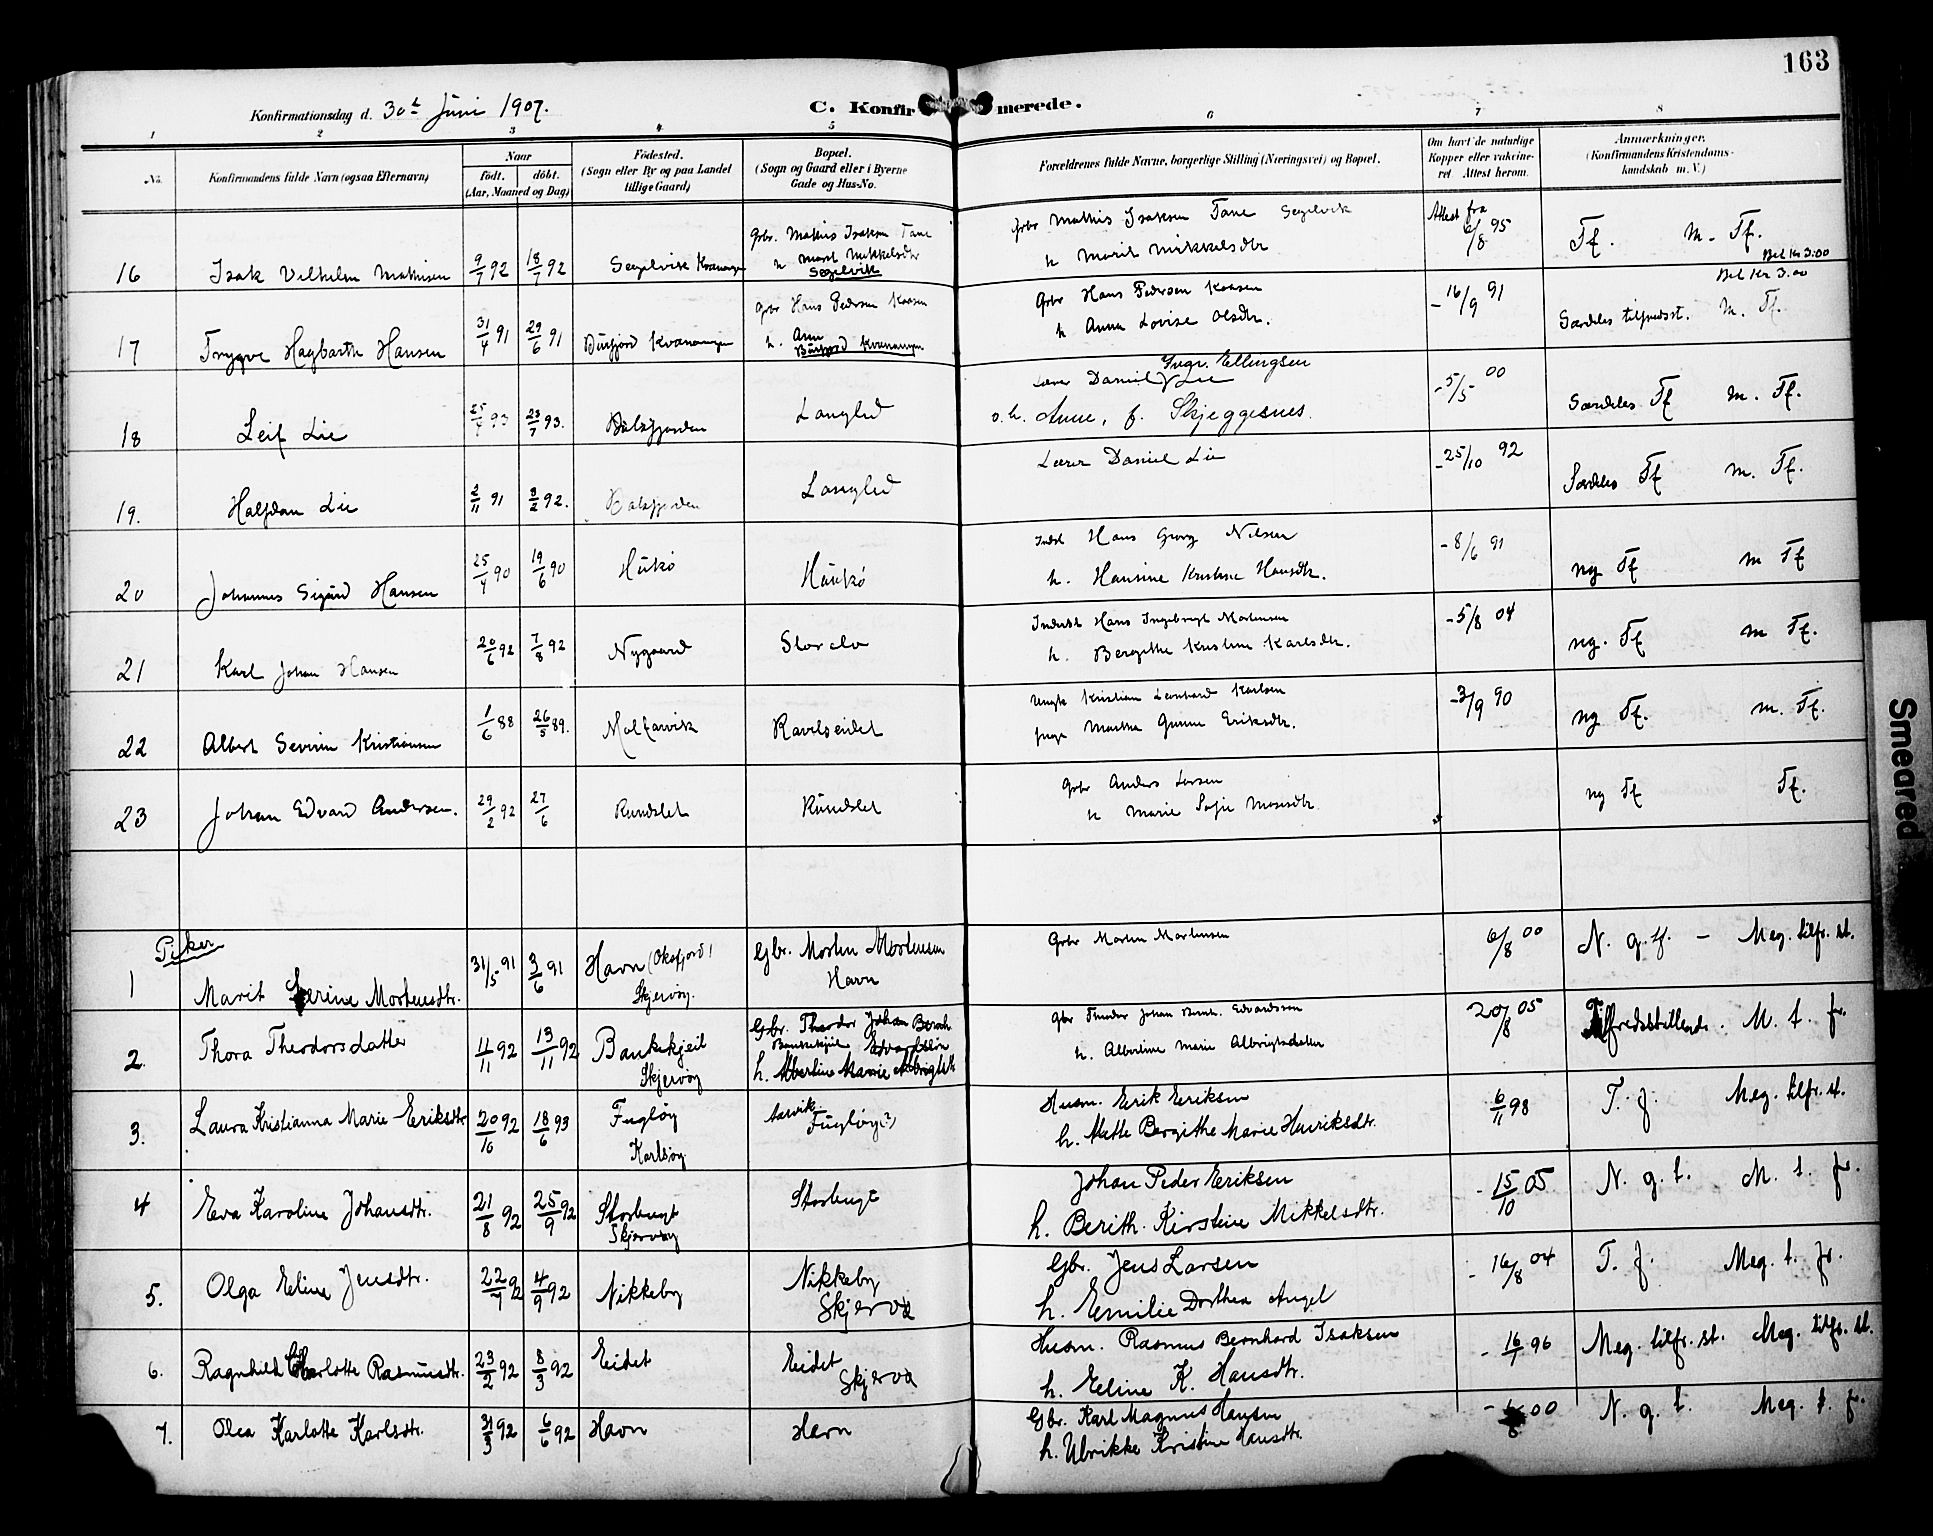 163
Konfirmationsdag d. 30te Juni 1907.
C. Konfirmerede.
1 2 3 4 5 6 7 8
No.
Konfirmandens fulde Navn (ogsaa Efternavn)
Naar
födt. döbt.
(Aar, Maaned og Dag)
Födested.
(Sogn eller By og paa Landet
tillige Gaard)
Bopæl.
(Sogn og Gaard eller i Byerne
Gade og Hus-No.
Forældrenes fulde Navne, borgerlige Stilling (Næringsvei) og Bopæl.
Om havt de naturlige
Kopper eller vakcine-
ret Attest herom.
Anmærkninger.
(Konfirmandens Kristendoms-
kundskab m. V.)
16 Isak Vilhelm Mathisen 9/7 92 18/7 92 Segelvik Kvænangen
Gbr. Mathis Isaksen Tane
h Marit Mikkelsdtr
Segelvik
Gbr Mathis Isaksen Tane Segelvik
h Marit Mikkelsdtr
Attest fra
6/8 95
Tf. M. Tf.
Bet Kr 3.00
17 Trygve Hagbarth Hansen 31/4 91 29/6 91 Burfjord Kvænangen
Gbr Hans Pedersen Kaasen
h. Anna
Burfjord Kvænangen
Gbr Hans Pedersen Kaasen
h Anna Lovise Olsdtr.
- 16/9 91
Bet Kr 3.00
Særdeles tilfredsst. M. Tf.
18 Leif Lie 25/4 93 23/7 93. Balsfjorden Langlid
Lærer Daniel Ingr. Ellingsen Lie
o. h. Anne, f. Skjeggesnes.
- 5/5 00
Særdeles Tf M. Tf.
19. Halfdan Lie 2/11 91 3/2 92. Balsfjorden Langlid
Lærer Daniel Lie
- 25/10 92
Særdeles Tf M. Tf.
20 Johannes Sigurd Hansen 25/4 90 19/6 90 Hukö Haukö
Inderst Hans Georg Nilsen
h. Hansine Kristine Hansdtr.
- 8/6 91
ng Tf M Tf
21 Karl Johan Hansen 20/6 92 7/8 92 Nygaard Storelv
Inderst Hans Ingebrigt Mortensen
h. Bergithe Kristine Karlsdtr.
- 5/8 04
ng. Tf M Tf.
22 Albert Severin Kristiansen 1/6 88 26/5 89. Molfarvik Ravelseidet
Ungk Kristian Leonhard Karlsen
pige Martha Gurine Eriksdtr.
- 3/9 90
ng Tf. M. Tf.
23 Johan Edvard Andersen. 29/2 92 27/6 Rundslet Rundslet
Gbr Anders Larsen
h Marie Sofie Mosesdtr
ng Tf Tf.
Piker
1 Marit Serine Mortensdtr. 31/5 91 3/6 91 Havn (Oksfjord)
Skjervøy.
Gbr. Morten Mortensen
Havn
Gbr Morten Mortensen
6/8 00
N. g. tf. - Meg. tilfr. st.
2. Thora Theodorsdatter 11/11 92 13/11 92 Bankekjeil
Skjervøy
Gbr. Theodor Johan Bernh.
Bankekjeil Edvardsen
h. Albertine Marie Albrigtsdtr
Gbr Theodor Johan Bernh. Edvardsen
h. Albertine Marie Albrigtsdatter
20/8 05
Tilfredsstillende. M. t. fr.
3. Laura Kristianna Marie Eriksdtr 20/10 92 18/6 93 Fugløy
Karlsøy
Aarvik
Fugløy(?)
Husm. Erik Eriksen
h. Mette Bergithe Marie Henriksdtr.
6/11 98
T. f. Meg. tilfr. st.
4 Eva Karoline Johansdtr. 21/8 92 25/9 92 Storbugt
Skjervøy
Storbugt
Johan Peder Eriksen
h. Berith Kirstine Mikkelsdtr.
- 15/10 05
N. g. t. M. t. fr.
5. Olga Eline Jensdtr. 22/7 92 4/9 92 Nikkeby
Nikkeby
Skjervø
Gbr. Jens Larsen
h. Emilie Dorthea Angel
- 16/8 04
T. f. Meg. t. fr.
6. Ragnhild Charlotte Rasmusdtr. 23/2 92 8/3 92 Eidet
Eidet
Skjervø
Husm. Rasmus Bernhard Isaksen
h. Eline K. Hansdtr.
- 16/7 96
Meg. tilfr. st. Meg. tilfr. st.
7. Olea Karlotte Karlsdtr. 31/3 92 6/6 92 Havn Havn
Gbr. Karl Magnus Hansen
h. Ulrikke Kristine Hansdtr.
00
N. g. t. Meg. t. fr.
Smeared